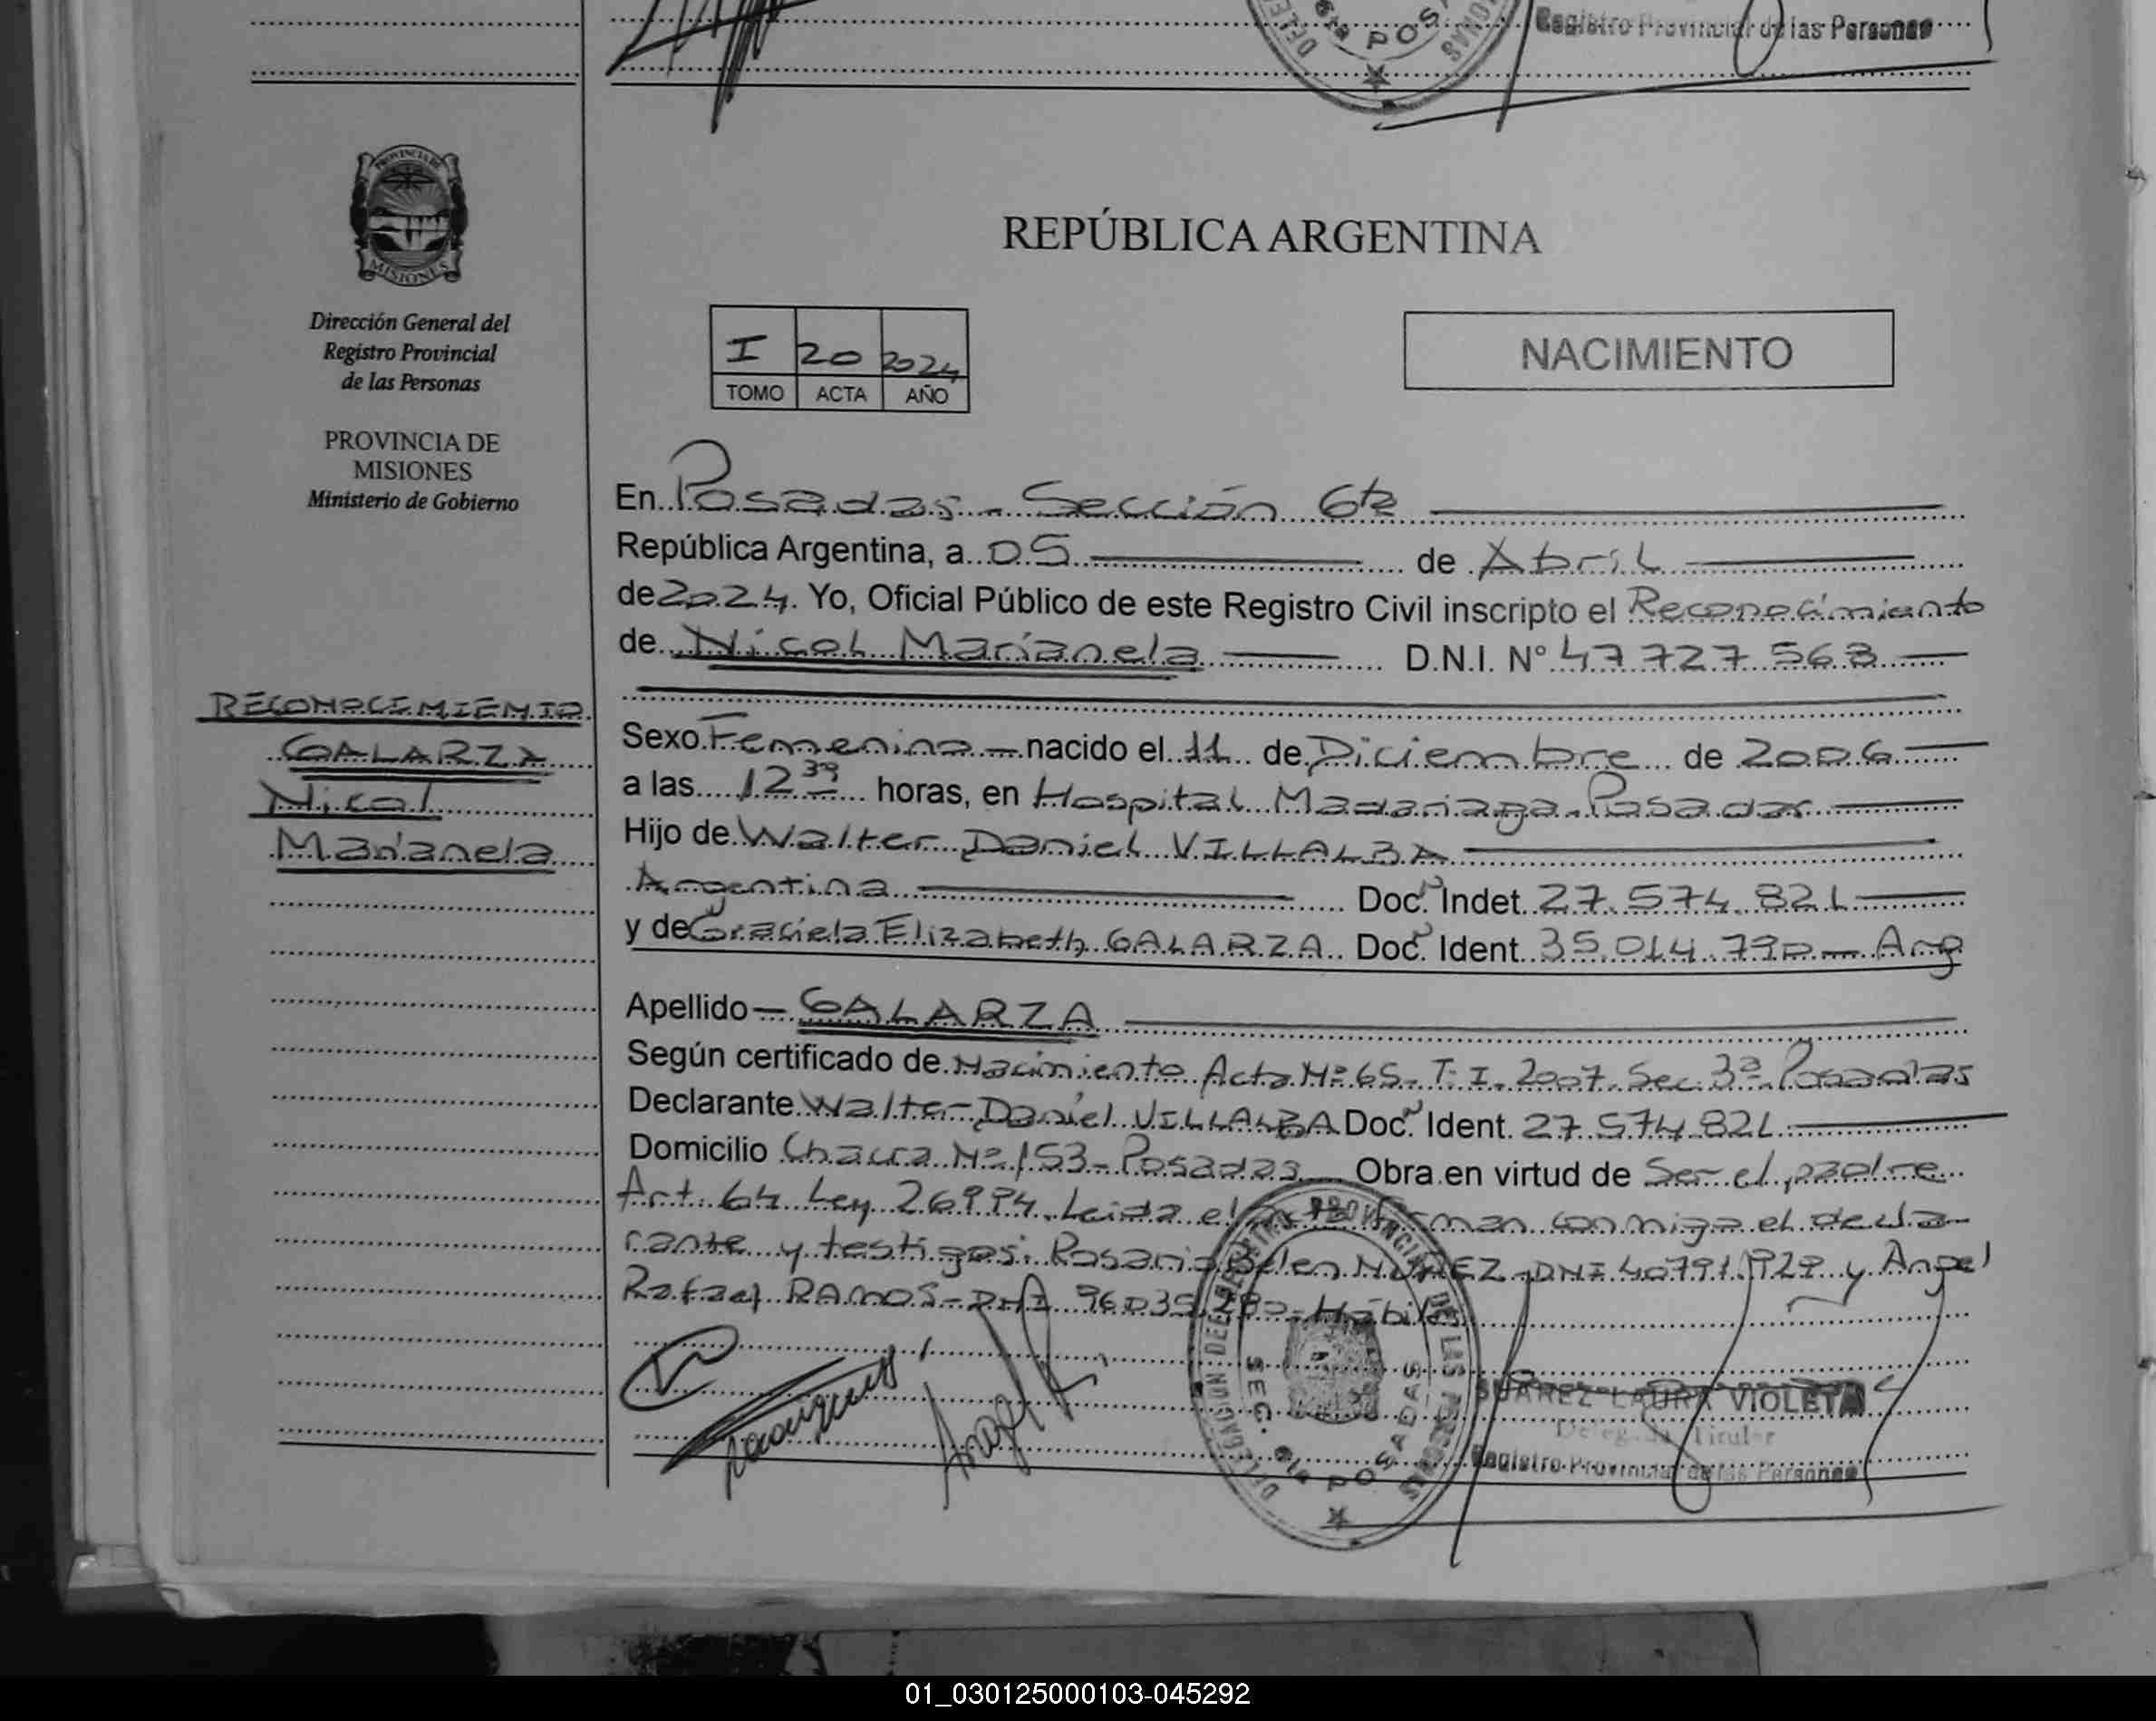 Registro Provincial de las Personas
PROVINCIA DE
MISIONES
Dirección General del
Registro Provincial
de las Personas
PROVINCIA DE
MISIONES
Ministerio de Gobierno
RECONOCIMIENTO
GALARZA
Nicol
Marianela
REPÚBLICA ARGENTINA
I 20 2024
TOMO ACTA AÑO
NACIMIENTO
En Posadas - Sección 6ta
República Argentina, a 05 de Abril
de 2024. Yo, Oficial Público de este Registro Civil inscripto el Reconocimiento
de Nicol Marianela D.N.I. N° 47 727 568
Sexo Femenino nacido el 11 de Diciembre de 2006
a las 12 39 horas, en Hospital Madariaga - Posadas
Hijo de Walter Daniel VILLALBA
Argentina Doc. Indet. 27.574.821
y de Graciela Elizabeth GALARZA Doc. Ident. 35.014.790 - Arg
Apellido GALARZA
Según certificado de Nacimiento Acta N° 65 - T. I. 2007. Sec. 3ª Posadas
Declarante Walter Daniel VILLALBA Doc. Ident. 27.574.821
Domicilio Chacra N° 153 - Posadas Obra en virtud de Ser el padre
Art. 64 Ley 26994. Leida el acta firman conmigo el decla-
rante y testigos: Rosario Belen NUÑEZ - DNI 40791.929 y Angel
Rafael RAMOS - DNI 96035. - Hábiles
DELEGACION PROVINCIAL DE LAS PERSONAS
SEC. 6ta POSADAS
SUAREZ LAURA VIOLETA
Delegada Titular
Registro Provincial de las Personas
01_030125000103-045292